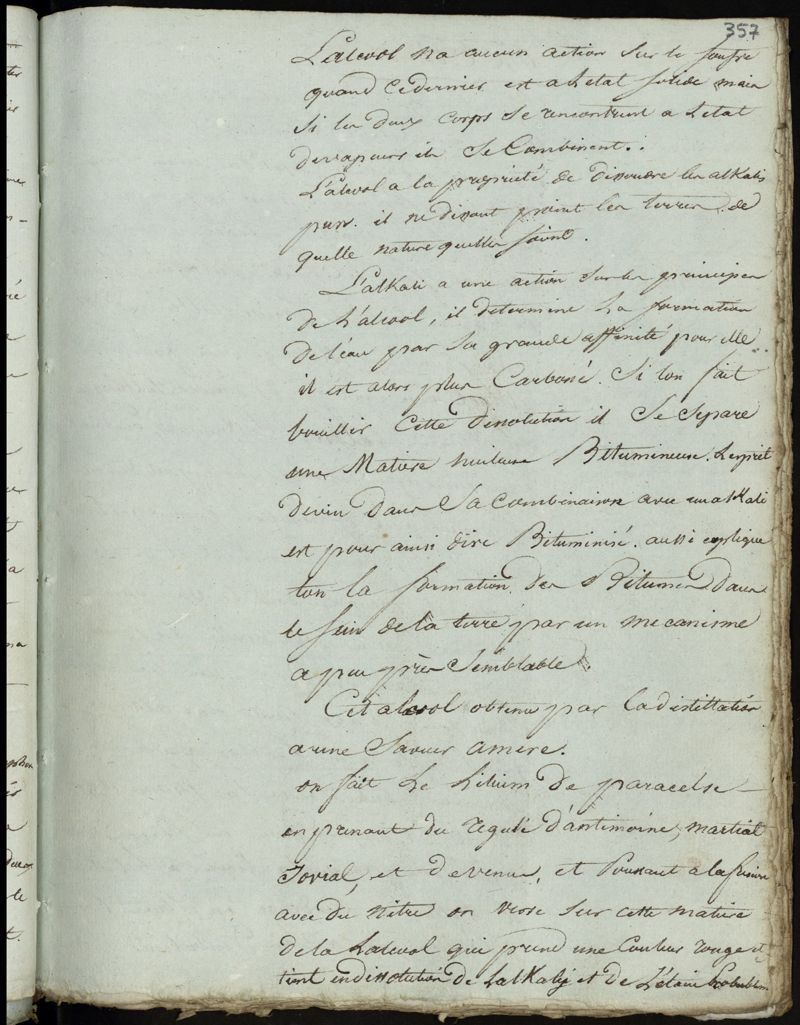 357
L'alcool na aucun action sur le soufre
quand ce dernier est a letat solide main
si les deux corps se rencontrent a letat
devapeurs ils se Combinent.
L'alcool a la propriété de dissoudre les alkalis
purs. il ne dissout point les terres de
quelle nature quelles soint.
L'alKali a une action sur les principes
de L'alcool, il determine la formation
de l'eau par sa grande affinité pour elle
il est alors plus Carboné. Si lon fait
bouillir cette dissolution il se separe
une Matiere huileuse Bitumineuse. Lesprit
devin dans sa combinaison avec un alKali
est pour ainsi dire Bituminisé. aussi explique
ton la formation des Bitumes dans
le sein de la terre par un mecanisme
apeu près semblable.
Cet alcool obtenu par la distillation
a une saveur amere.
on fait le Lilium de paracelse
en prenant du regule d'antimoine, martial
Jovial, et de venus, et Poussant a la fusion
avec du nitre on verse sur cette matiere
de la Lalcool qui prend une Couleur rouge et
tient endissolution de Lalkali et de L'étain